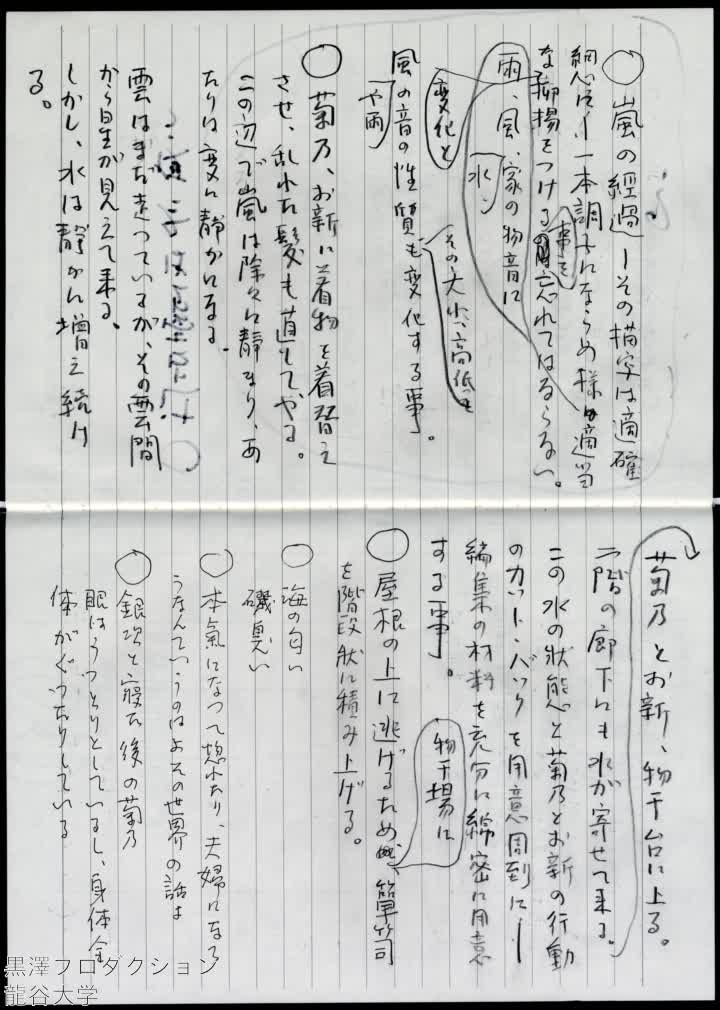 ○ 嵐の經過ーその描写は適確
一本調子にならぬ様に適当
な抑揚をつける事を忘れてはならない。
雨、風、家の物音に
水、
変化と
その大小、高低も
風の音の性質も変化する事。
や雨
○ 菊乃、お新に着物を着替え
させ、乱れた髪も直してやる。
この辺で嵐は除々に静まり、あ
たりは変に静かになる。
雲はまだ走っているが、その雲間
から星が見えて来る。
しかし、水は静かに増え続け
る。
菊乃とお新、物干台に上る。
二階の廊下にも水が寄せて来る。
この水の状態と菊乃とお新の行動
のカット・バックを用意周到にー
編集の材料を充分に綿密に用意
する事。
物干場に
○ 屋根の上に逃げるため 箪笥
を階段状に積み上げる。
○ 海の匂い
磯臭い
○ 本氣になって惚れたり、夫婦になろ
うなんていうのはよその世界の話よ
○ 銀次と寝た後の菊乃
眼はうっとりとしているし、身体全
体がぐったりしている
黒澤プロダクション
龍谷大学